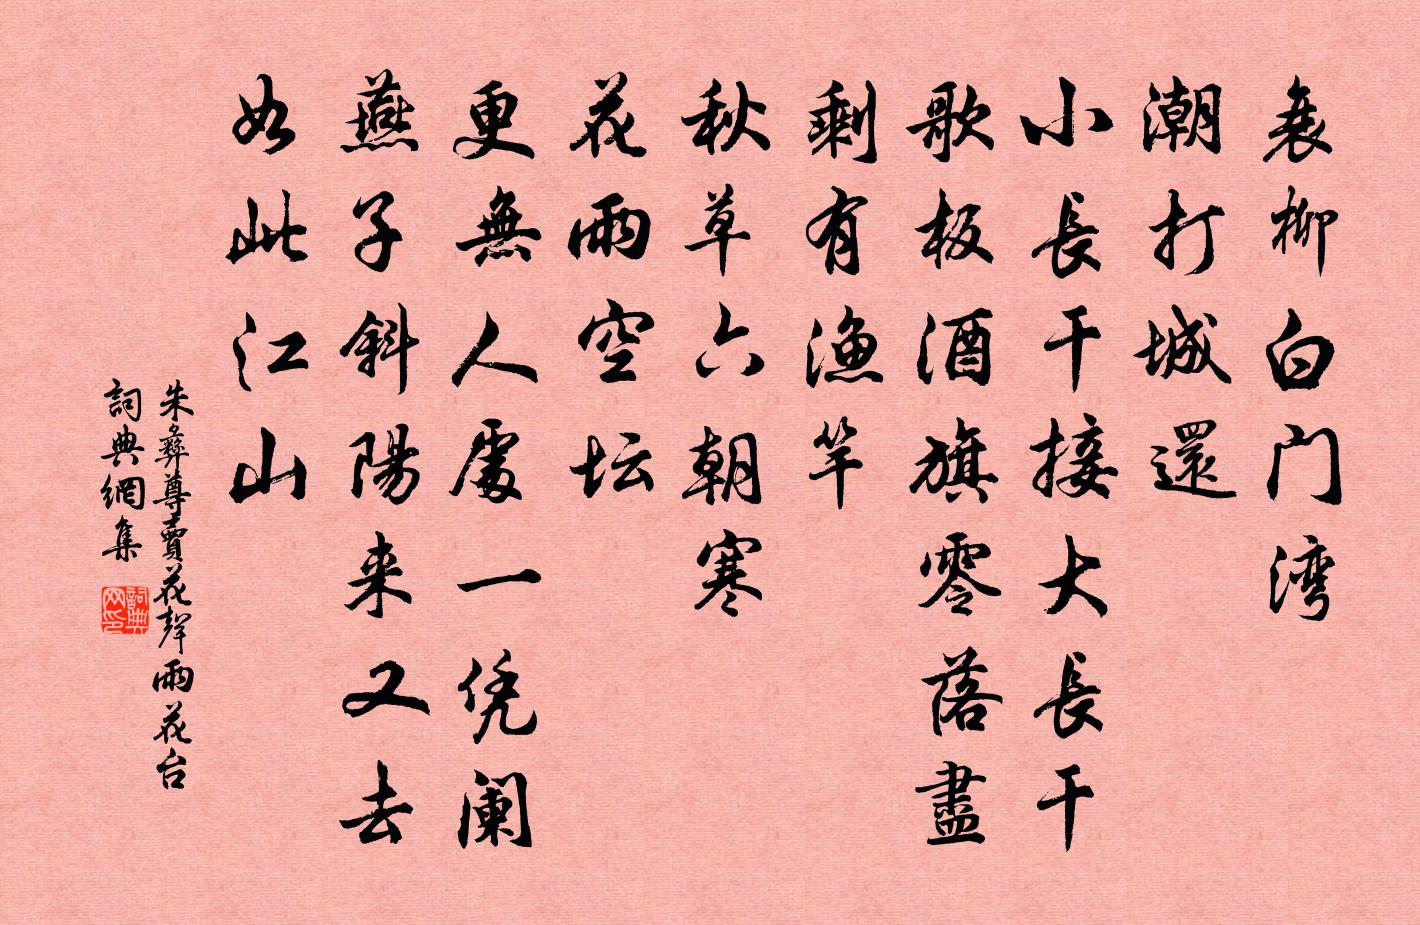 衰柳白门湾
潮打城還
小長干接大長干
歌板酒旗零落盡
剩有漁竿
秋草六朝寒
花雨空坛
更無人處一凭阑
燕子斜陽来又去
如此江山
朱彝尊賣花聲雨花台
詞典網集
詞典网印